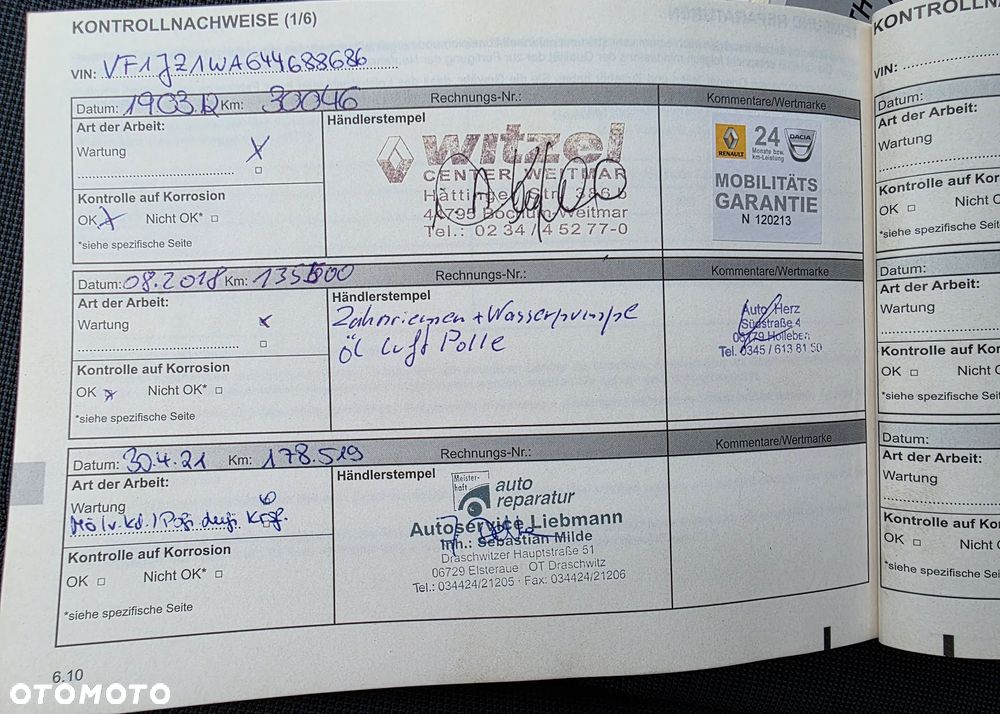 KONTROLLNACHWEISE (1/6)
VIN: VF1JZ1WA644688686
Datum: 1903.12 Km: 30046 Rechnungs-Nr.: Kommentare/Wertmarke
Art der Arbeit:
Wartung X
Kontrolle auf Korrosion
OK X Nicht OK*
*siehe spezifische Seite
Händlerstempel
witzel
CENTER WEITMAR
Hattinger Str. 386
44795 Bochum-Weitmar
Tel.: 02 34 / 4 52 77-0
RENAULT
24
Monate bzw.
km-Leistung
DACIA
MOBILITÄTS
GARANTIE
N 120213
Datum: 08.2018 Km: Rechnungs-Nr.: Kommentare/Wertmarke
Art der Arbeit:
Wartung x
Kontrolle auf Korrosion
OK x Nicht OK*
*siehe spezifische Seite
Händlerstempel
Zahnriemen + Wasserpumpe
Öl Luft Polle
Auto Herz
Südstraße 4
06179 Holleben
Tel. 0345 / 613 81 50
Datum: 30.4.21 Km: 178.519 Rechnungs-Nr.: Kommentare/Wertmarke
Art der Arbeit:
Wartung
Kontrolle auf Korrosion
OK Nicht OK*
*siehe spezifische Seite
Händlerstempel
Meister-
haft
auto
reparatur
Autoservice Liebmann
Inh.: Sebastian Milde
Draschwitzer Hauptstraße 51
06729 Elsteraue OT Draschwitz
Tel.: 034424/21205 · Fax: 034424/21206
6.10
KONTROLLN
VIN:
Datum:
Art der Arbeit:
Wartung
Kontrolle auf Kor
OK Nicht C
*siehe spezifische Seit
Datum:
Art der Arbeit:
Wartung
Kontrolle auf Korr
OK Nicht O
*siehe spezifische Seit
Datum:
Art der Arbeit:
Wartung
Kontrolle auf Korro
OK Nicht O
*siehe spezifische Seit
OTOMOTO